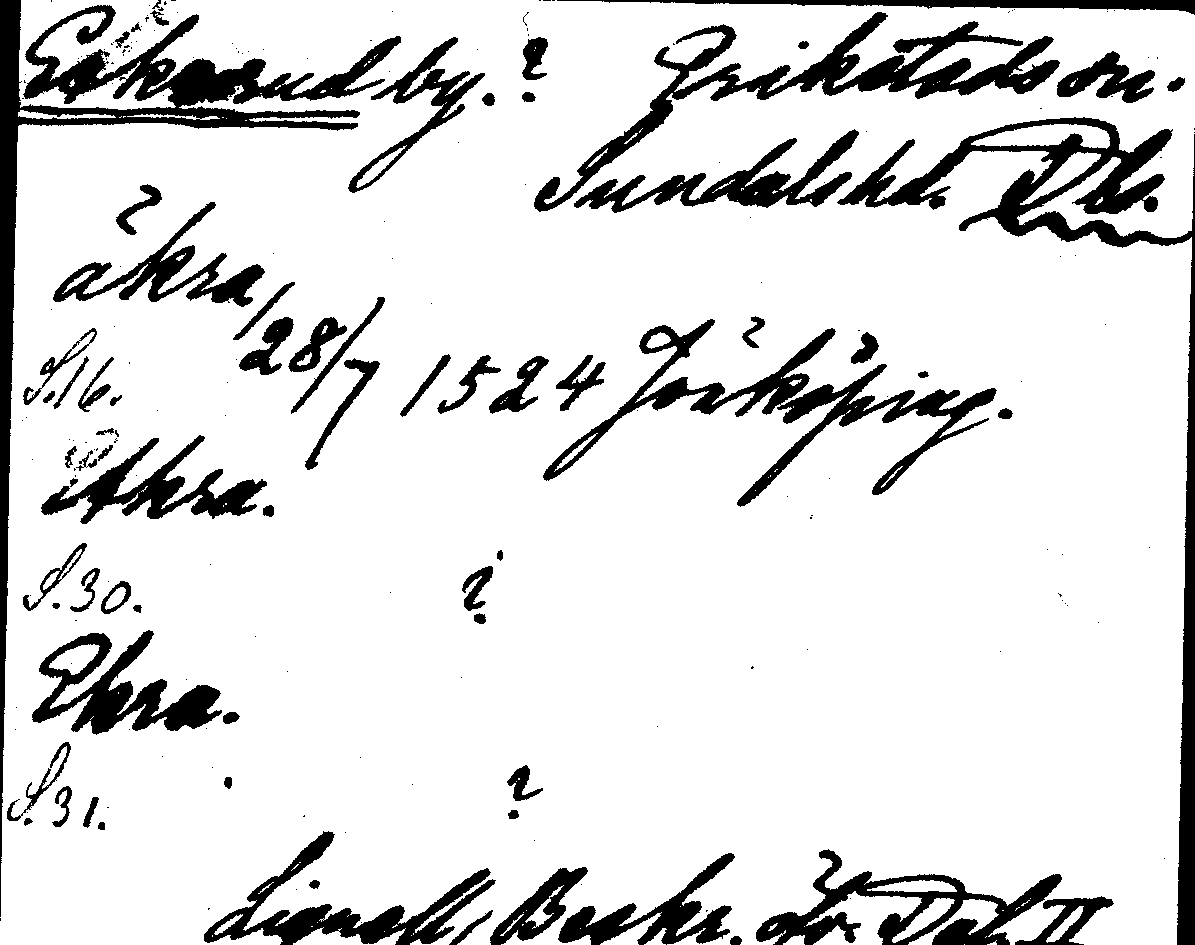 Ekerud by. ? Erikstads sn.
Sundals hd. Dls.
åkra
S. 16. 28/7 1524 Jönköping.
Ekra.
S. 30. ?
Ekra.
S. 31. ?
Lignell, Beskr. öv. Dal. II